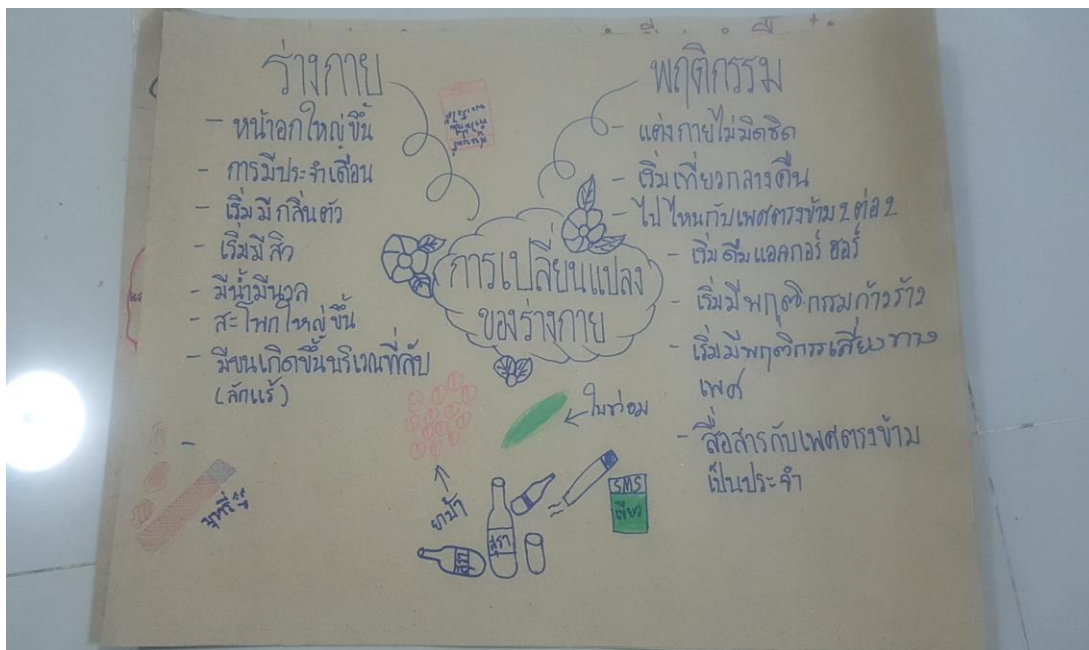 ร่างกาย
- หน้าอกใหญ่ขึ้น
- การมีประจำเดือน
- เริ่มมีกลิ่นตัว
- เริ่มมีสิว
- มีน้ำมีนวล
- สะโพกใหญ่ขึ้น
- มีขนเกิดขึ้นบริเวณที่ลับ
(ลักแร้)
-
พฤติกรรม
- แต่งกายไม่มิดชิด
- เริ่มเที่ยวกลางคืน
- ไปไหนกับเพศตรงข้าม 2 ต่อ 2
- เริ่มดืมแอลกอร์ฮอร์
- เริ่มมีพฤติกรรมก้าวร้าว
- เริ่มมีพฤติการเสี่ยงทาง
เพศ
- สื่อสารกับเพศตรงข้าม
เป็นประจำ
การเปลี่ยนแปลง
ของร่างกาย
ใบท่อม
ยาบ้า
สุรา
สุรา
SMS
เขียว
บุหรี่